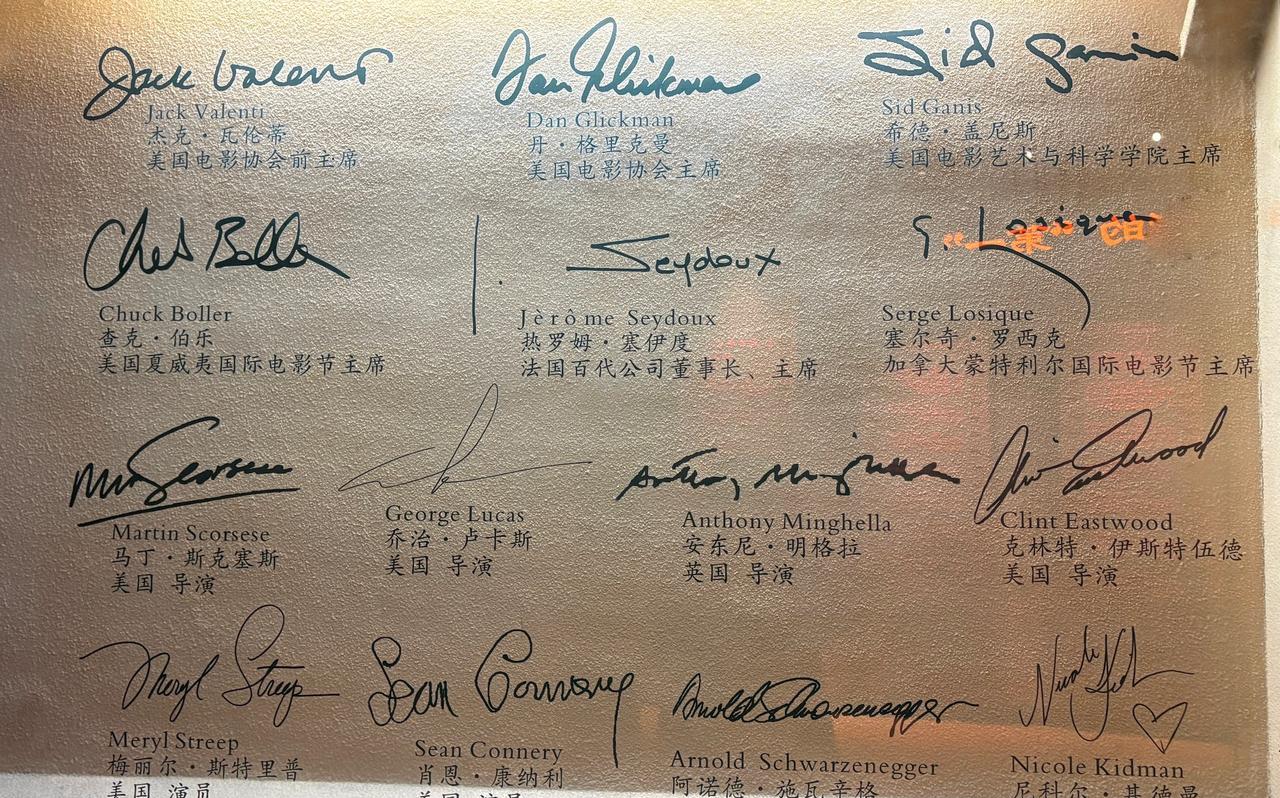 Jack Valenti
Jack Valenti
杰克·瓦伦蒂
美国电影协会前主席
Dan Glickman
Dan Glickman
丹·格里克曼
美国电影协会主席
Sid Ganis
Sid Ganis
希德·盖尼斯
美国电影艺术与科学学院主席
Chuck Boller
查克·伯乐
美国夏威夷国际电影节主席
J. Seydoux
Jèrôme Seydoux
热罗姆·塞伊度
法国百代公司董事长、主席
S. Losique
Serge Losique
塞尔奇·罗西克
加拿大蒙特利尔国际电影节主席
Martin Scorsese
马丁·斯克塞斯
美国 导演
George Lucas
乔治·卢卡斯
美国 导演
Anthony Minghella
Anthony Minghella
安东尼·明格拉
英国 导演
Clint Eastwood
Clint Eastwood
克林特·伊斯特伍德
美国 导演
Meryl Streep
Meryl Streep
梅丽尔·斯特里普
美国 演员
Sean Connery
Sean Connery
肖恩·康纳利
Arnold Schwarzenegger
Arnold Schwarzenegger
阿诺德·施瓦辛格
Nicole Kidman
尼科尔·基德曼